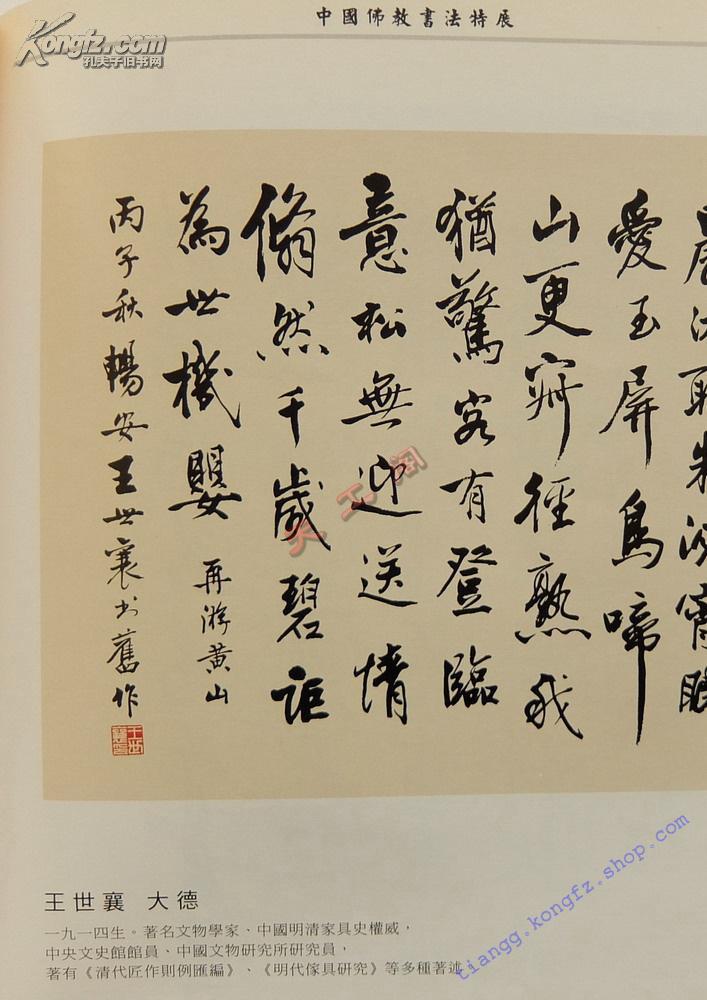 中國佛教書法特展
Kongfz.com
孔夫子旧书网
愛玉屏鳥啼
山更寂徑熟我
猶驚客有登臨
意松無迎送情
翛然千歲碧詎
為世機嬰 再游黃山
丙子秋暢安王世襄書舊作
天工阁
王世襄 大德
一九一四生。著名文物學家、中國明清家具史權威，
中央文史館館員、中國文物研究所研究員，
著有《清代匠作則例匯編》、《明代傢具研究》等多種著述
tiangg.kongfz.shop.com